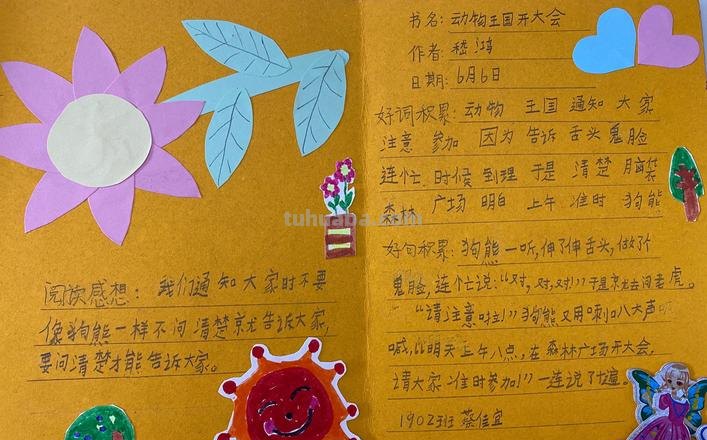 书名：动物王国开大会
作者：嵇鸿
日期：6月6日
好词积累：动物 王国 通知 大家
注意 参加 因为 告诉 舌头 鬼脸
连忙 时候 到理 于是 清楚 脑袋
森林 广场 明白 上午 准时 狗熊
好句积累：狗熊一听，伸了伸舌头，做了个
鬼脸，连忙说：“对，对，对！”于是京尤去问老虎。
“请注意啦！”狗熊又用喇叭大声
喊，“明天上午八点，在森林广场开大会，
请大家准时参加！”一连说了十遍。
1902班 蔡佳宜
阅族感想：我们通知大家时不要
像狗熊一样不问清楚京尤告诉大家，
要问清楚才能告诉大家。
tuhuaba.com